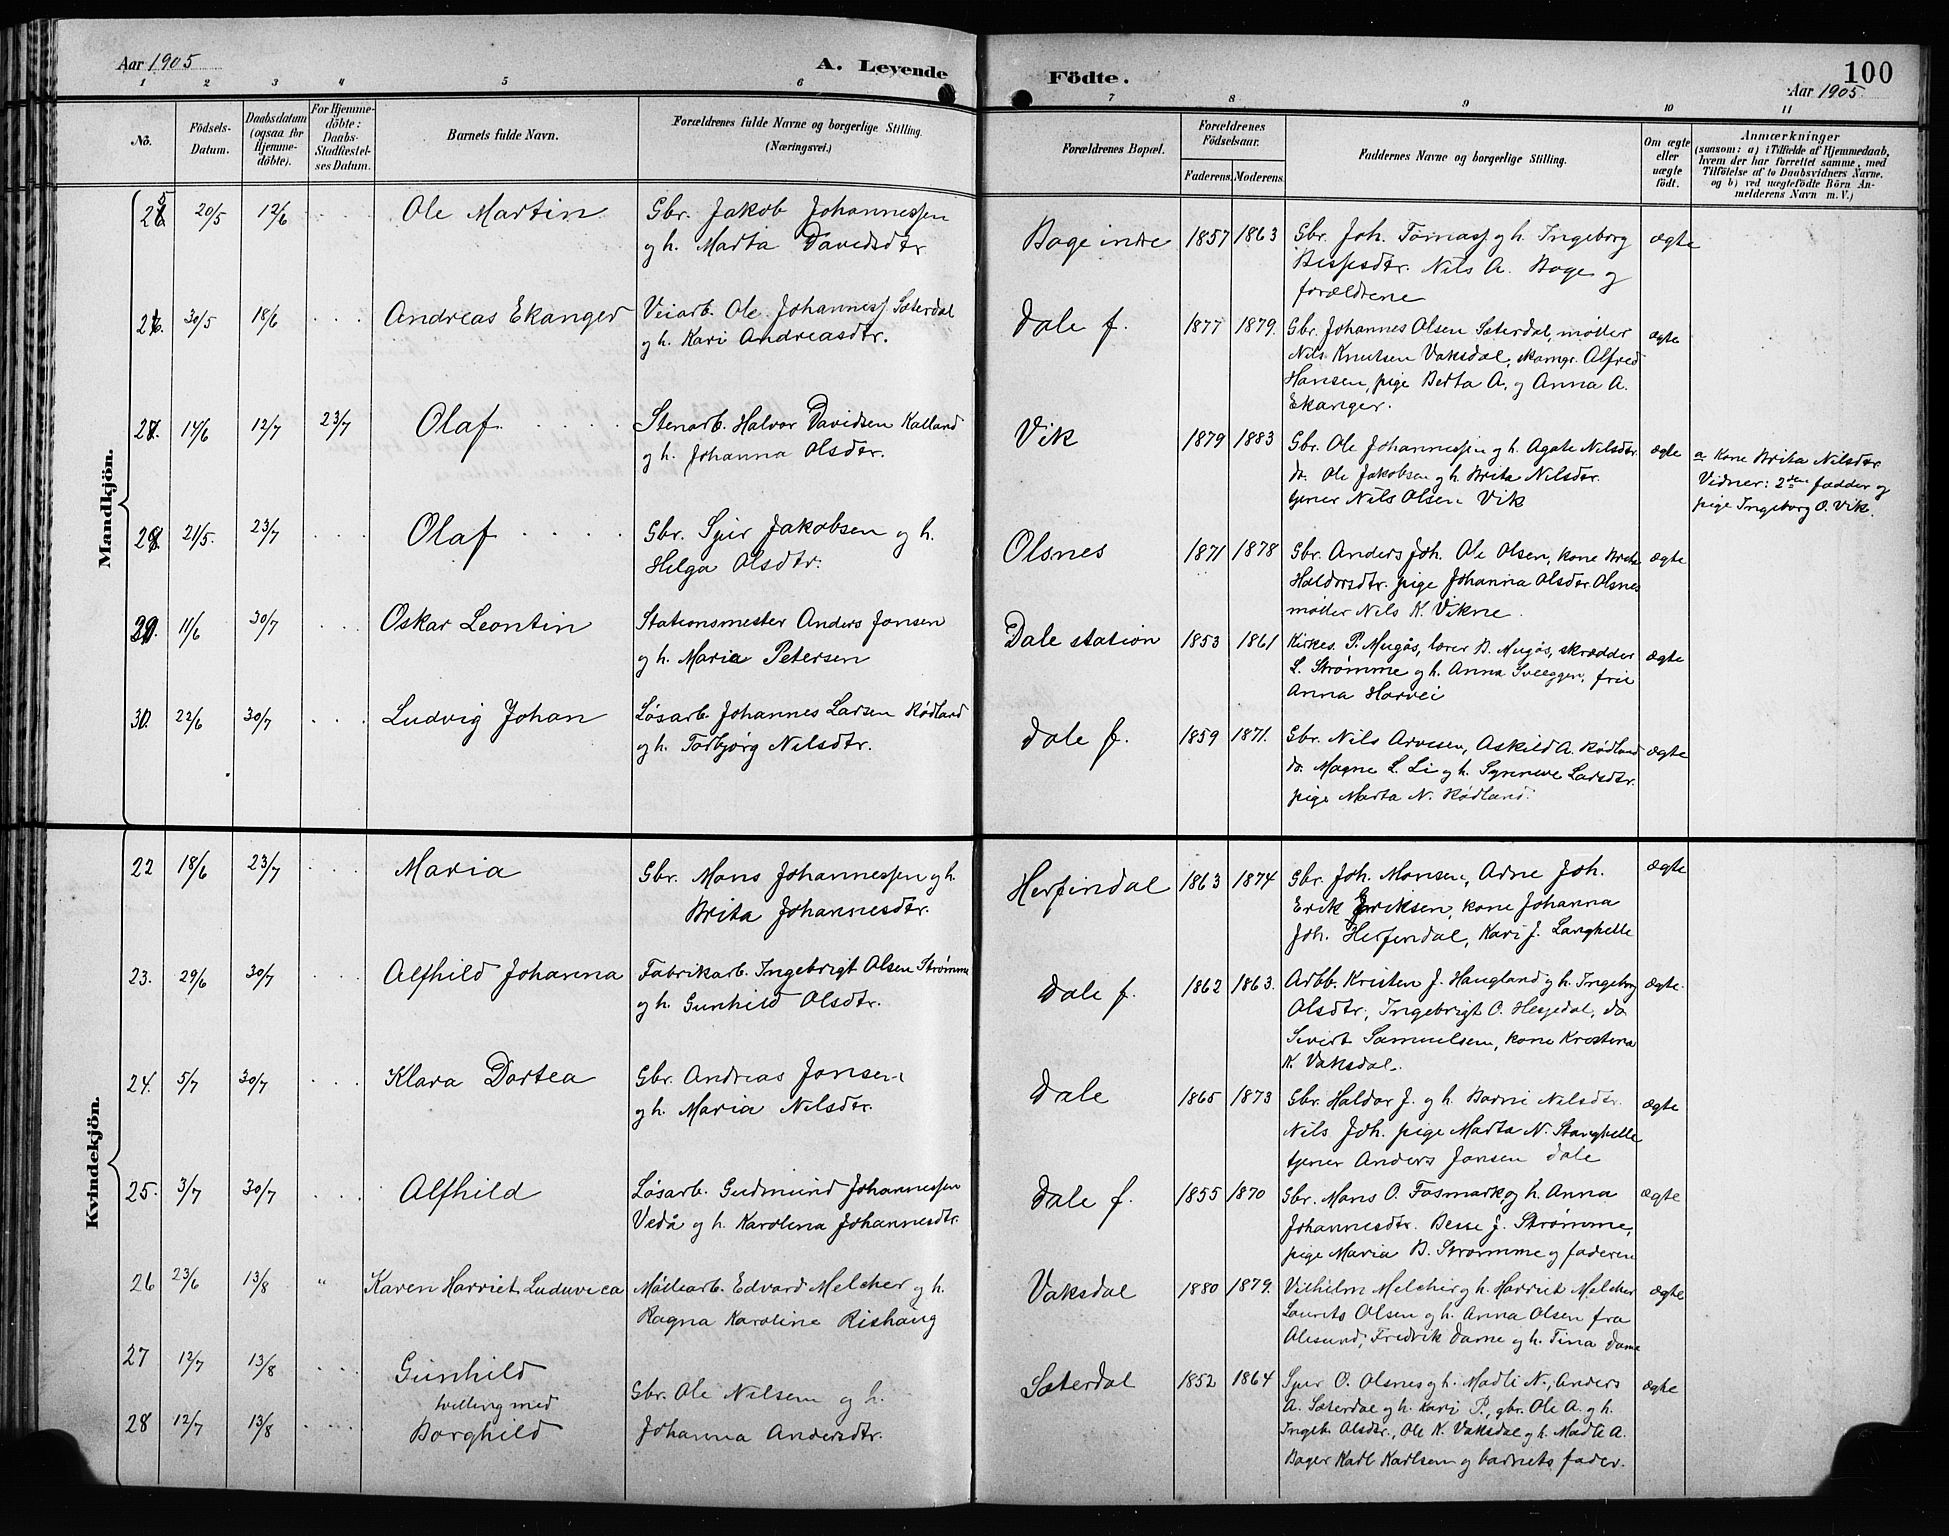 Aar 1905
A. Levende
Födte.
100
Aar 1905.
1 2 3 4 5 6 7 8 9 10 11
No.
Födsels-
Datum.
Daabsdatum
(ogsaa for
Hjemme-
döbte).
For Hjemme-
döbte:
Daabs-
Stadfæstel-
ses Datum.
Barnets fulde Navn.
Forældrenes fulde Navne og borgerlige Stilling.
(Næringsvei.)
Forældrenes Bopæl.
Forældrenes
Födselsaar.
Faderens. Moderens.
Faddernes Navne og borgerlige Stilling.
Om ægte
eller
uægte
födt.
Anmærkninger
(saasom: a) i Tilfælde af Hjemmedaab,
hvem der har forrettet samme, med
Tilföielse af to Daabsvidners Navne.
og b) ved uægtefödte Börn An-
melderens Navn m. V.)
Mandkjön.
25 20/5 12/6 Ole Martin
Gbr. Jakob Johannessen
og h. Marta Davidsdtr.
Boge indre 1857 1863
Gbr. Joh. Tomass. og h. Ingeborg
Bispsdtr. Nils A. Boge og
forældrene
ægte
26. 30/5 18/6 Andreas Ekanger
Veiarb. Ole Johanness. Sæterdal
og h. Kari Andreasdtr.
Dale f. 1877 1879.
Gbr. Johannes Olsen Sæterdal, møller
Nils Knutsen Vaksdal, Alfred
Hansen, pige Berta A. og Anna A.
Ekanger.
ægte
27. 14/6 12/7 23/7 Olaf
Stenarb. Halvor Davidsen Kalland
og h. Johanna Olsdtr.
Vik 1879 1883
Gbr. Ole Johannessen og h. Agate Nilsdtr.
do. Ole Jakobsen og h. Brita Nilsdtr.
tjener Nils Olsen Vik
ægte
a. Kone Brita Nilsdtr.
Vidner: 2den fadder og
pige Ingeborg O. Vik.
28. 21/5. 23/7 Olaf
Gbr. Sjur Jakobsen og h.
Helga Olsdtr.
Olsnes 1871 1878
Gbr. Anders Joh. Ole Olsen, kone Brita
Haldorsdtr. pige Johanna Olsdtr. Olsnes
møller Nils K. Vikne.
ægte
29. 11/6 30/7 Oskar Leontin
Stationsmester Anders Jansen
og h. Maria Petersen
Dale station 1853 1861
Kirkes. P. Mugås, lærer B. Mugås, skrædder
L. Strømme og h. Anna Sveeggen, frk
Anna Horvei
ægte
30. 22/6 30/7 Ludvig Johan
Løsarb. Johannes Larsen Rødland
og h. Torbjørg Nilsdtr.
Dale f. 1859 1871.
Gbr. Nils Arvesen, Askild A. Rødland
do. Magne L. Li og h. Synneve Larsdtr.
pige Marta N. Rødland.
ægte
Kvindekjön.
22 18/6 23/7 Maria
Gbr. Mons Johannessen og h.
Brita Johannesdtr.
Herfindal 1863 1874
Gbr. Joh. Monsen, Arne Joh.
Erik Eriksen, kone Johanna
Joh. Herfindal, Kari J. Langhelle
ægte
23. 29/6 30/7 Alfhild Johanna
Fabrikarb. Ingebrigt Olsen Strømme
og h. Gunhild Olsdtr.
Dale f. 1862 1863.
Arbb. Kristen J. Haugland og h. Ingeborg
Olsdtr., Ingebrigt O. Hesjedal, do
Sivert Samuelsen, kone Kristina
K. Vaksdal.
ægte.
24. 5/7 30/7 Klara Dortea
Gbr. Andreas Jonsen
og h. Maria Nilsdtr.
Dale 1865 1873
Gbr. Haldor J. og h. Barni Nilsdtr.
Nils Joh. pige Marta N. Stanghelle
tjener Anders Jonsen Dale
ægte
25. 3/7 30/7 Alfhild
Løsarb. Gudmund Johannessen
Vedå og h. Karolina Johannesdtr.
Dale f. 1855 1870
Gbr. Mons O. Fosmark og h. Anna
Johannesdtr. Besse J. Strømme,
pige Maria B. Strømme og faderen
ægte
26 23/6 13/8 " Karen Harriet Luduvica
Møllearb. Edvard Melcher og h.
Ragna Karoline Rishaug
Vaksdal 1880 1879.
Vilhelm Melcher og h. Harriet Melcher
Laurits Olsen og h. Anna Olsen fra
Ålesund, Fredrik Dame og h. Tina Dame
ægte
27 12/7 13/8 Gunhild
tvilling med
28 12/7 13/8 Borghild
Gbr. Ole Nilsen og h.
Johanna Andersdtr.
Sæterdal 1852 1864
Sjur O. Olsnes og h. Madli N., Anders
A. Sæterdal og h. Kari P., gbr. Ole A. og h.
Ingeb. Olsdtr., Ole K. Vaksdal og h. Madli A.
Bager Karl Karlsen og barnets fader.
ægte